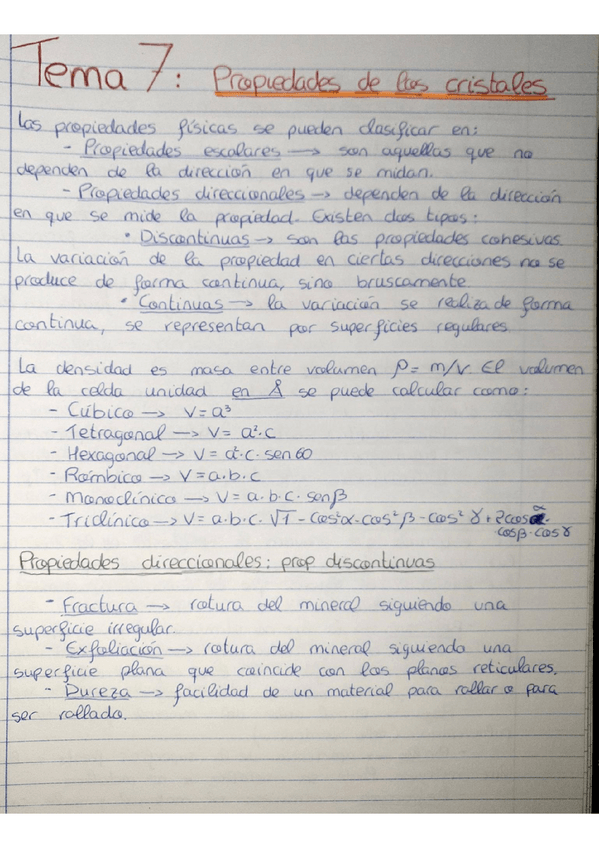 Tema 7: Propiedades de los cristales
Las propiedades físicas se pueden clasificar en:
- Propiedades escalares → son aquellas que no
dependen de la dirección en que se midan.
- Propiedades direccionales → dependen de la dirección
en que se mide la propiedad. Existen dos tipos:
• Discontinuas → son las propiedades cohesivas.
La variación de la propiedad en ciertas direcciones no se
produce de forma continua, sino bruscamente
• Continuas → la variación se realiza de forma
continua, se representan por superficies regulares
La densidad es masa entre volumen ρ = m/v El volumen
de la celda unidad en Å se puede calcular como:
- Cúbico → V = a³
- Tetragonal → V = a²·c
- Hexagonal → V = a²·c·sen60
- Rómbico → V = a·b·c
- Monoclínico → V = a·b·c·senβ
- Triclínico → V = a·b·c·√1 - cos²α - cos²β - cos²γ + 2cosα·
·cosβ·cosγ
Propiedades direccionales: prop discontinuas
- Fractura → rotura del mineral siguiendo una
superficie irregular.
- Exfoliación → rotura del mineral siguiendo una
superficie plana que coincide con los planos reticulares.
- Dureza → facilidad de un material para rallar o para
ser rallado.